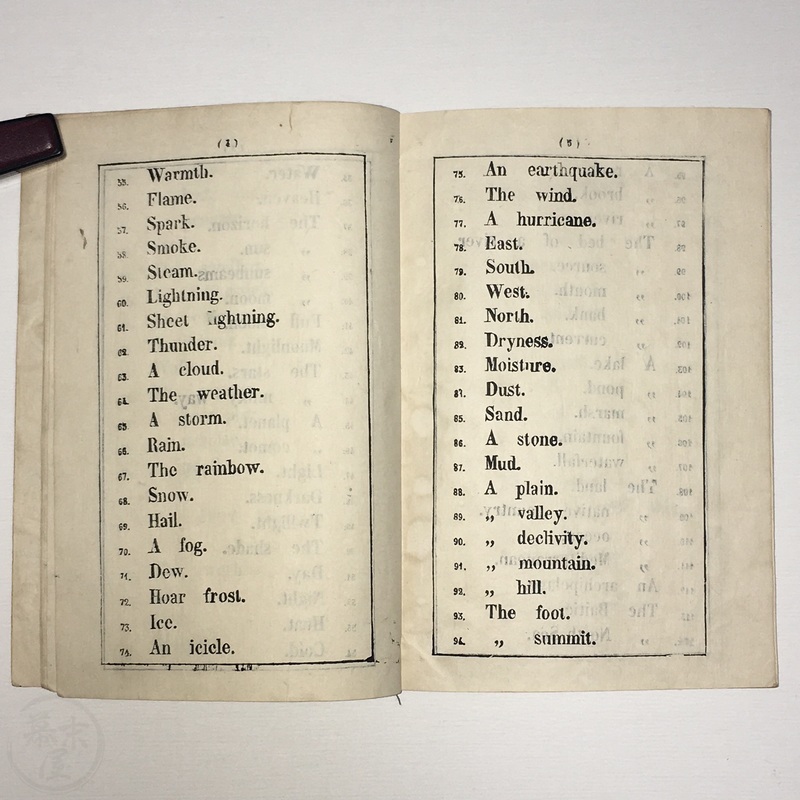 55. Warmth.
56. Flame.
57. Spark.
58. Smoke.
59. Steam.
60. Lightning.
61. Sheet lightning.
62. Thunder.
63. A cloud.
64. The weather.
65. A storm.
66. Rain.
67. The rainbow.
68. Snow.
69. Hail.
70. A fog.
71. Dew.
72. Hoar frost.
73. Ice.
74. An icicle.
(5)
75. An earthquake.
76. The wind.
77. A hurricane.
78. East.
79. South.
80. West.
81. North.
82. Dryness.
83. Moisture.
84. Dust.
85. Sand.
86. A stone.
87. Mud.
88. A plain.
89. „ valley.
90. „ declivity.
91. „ mountain.
92. „ hill.
93. The foot.
94. „ summit.